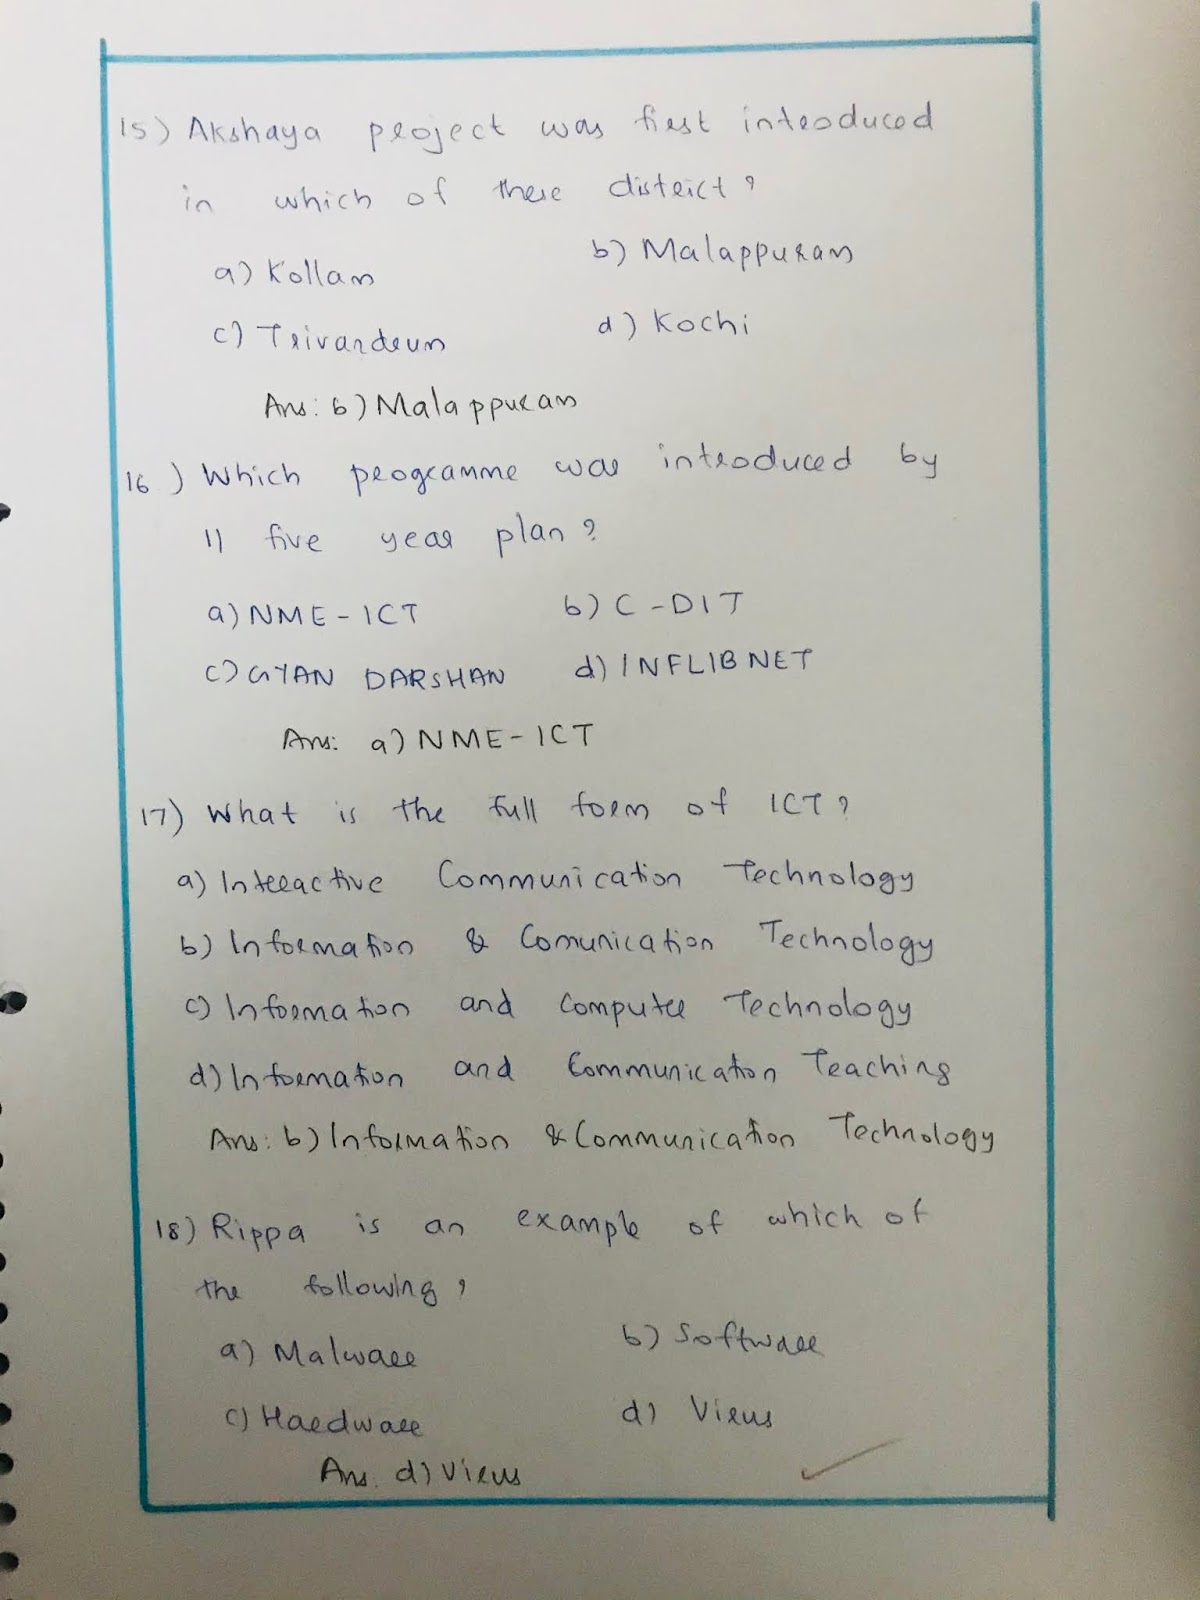 15) Akshaya project was first introduced
in which of these district?
a) Kollam b) Malappuram
c) Trivandrum d) Kochi
Ans: b) Malappuram
16) Which programme was introduced by
11 five year plan?
a) NME-ICT b) C-DIT
c) GYAN DARSHAN d) INFLIBNET
Ans: a) NME-ICT
17) What is the full form of ICT?
a) Interactive Communication Technology
b) Information & Comunication Technology
c) Information and Computer Technology
d) Information and Communication Teaching
Ans: b) Information & Communication Technology
18) Rippa is an example of which of
the following?
a) Malware b) Software
c) Hardware d) Virus
Ans. d) Virus